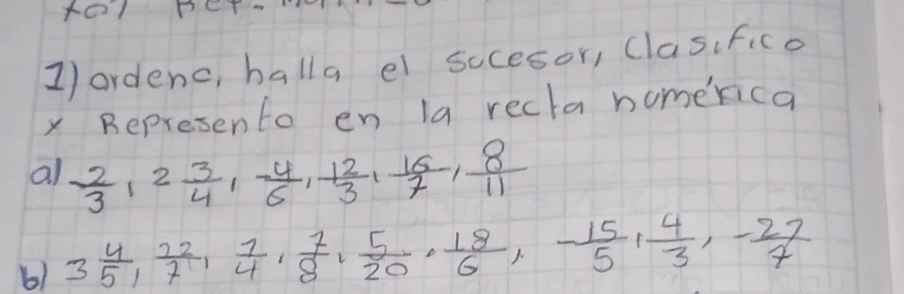 1) ordene, halla el sucesor, Clasifico
y Represento en la recta numérica
a) -2/3, 2 3/4, -4/6, 12/3, 16/7, 8/11
b) 3 4/5, 22/7, 7/4, 7/8, 5/20, 18/6, -15/5, 4/3, -27/7